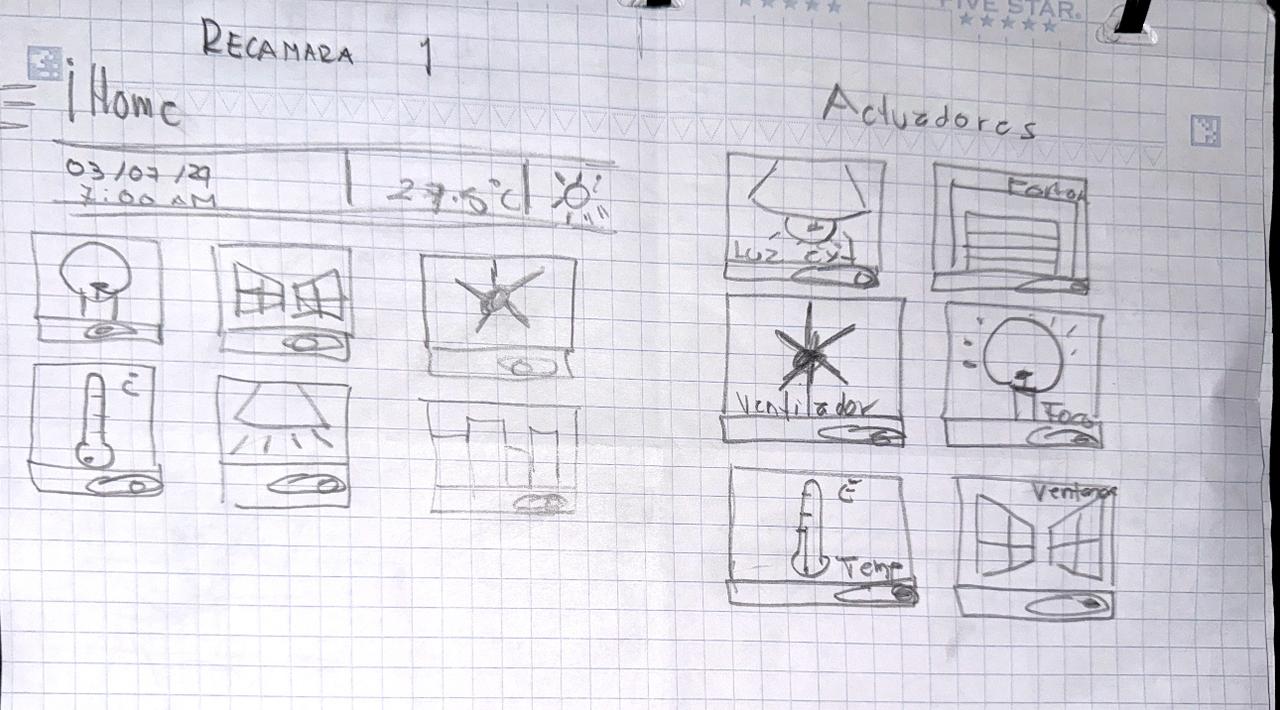 FIVE STAR.
RECAMARA 1
iHome
03/07/29
7:00 AM
27.5°C
C
Actuadores
Luz Ext
Porton
Ventilador
Foco
C
Temp
Ventanas